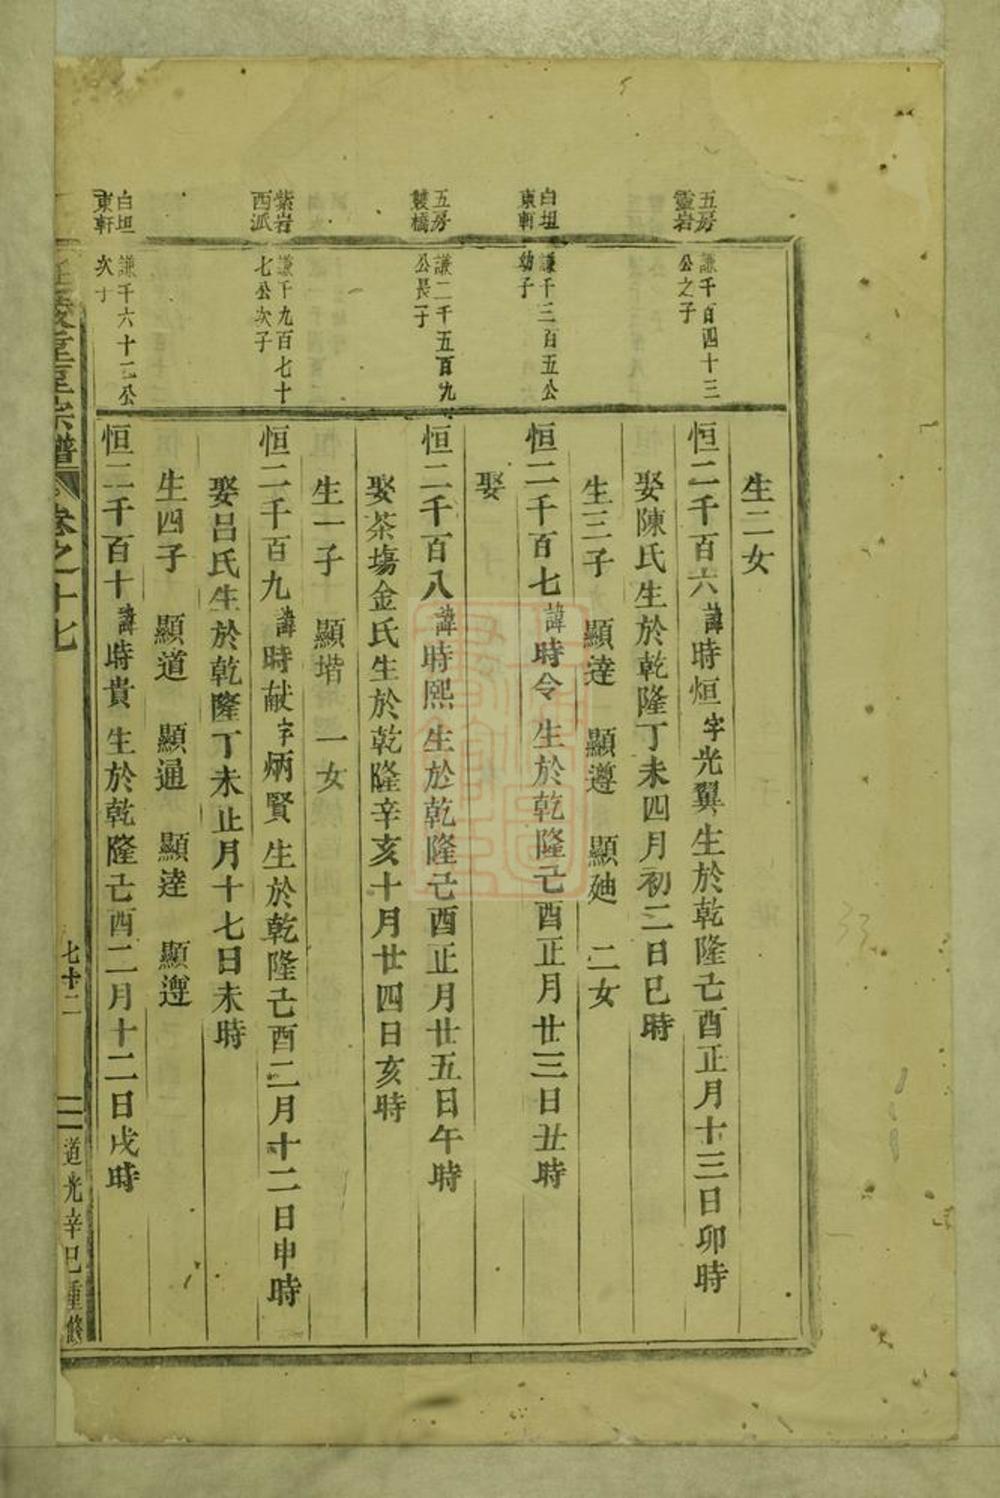 生二女
五房
靈岩
謙千百四十三
公之子
恒二千百六 諱時烜 字光翼 生於乾隆己酉正月十三日卯時
娶陳氏生於乾隆丁未四月初二日巳時
生三子 顯達 顯遵 顯廸 二女
白坦
東軒
謙千三百五公
幼子
恒二千百七 諱時令 生於乾隆己酉正月廿三日丑時
娶
五房
雙橋
謙二千五百九
公長子
恒二千百八 諱時熙 生於乾隆己酉正月廿五日午時
娶茶塲金氏生於乾隆辛亥十月廿四日亥時
生一子 顯堦 一女
紫岩
西派
謙千九百七十
七公次子
恒二千百九 諱時献 字炳賢 生於乾隆己酉二月十二日申時
娶呂氏生於乾隆丁未正月十七日未時
生四子 顯道 顯通 顯逵 顯遵
白坦
東軒
謙千六十二公
次子
恒二千百十 諱時貴 生於乾隆己酉二月十二日戌時
宗譜 卷之十七 七十二 道光辛巳重修